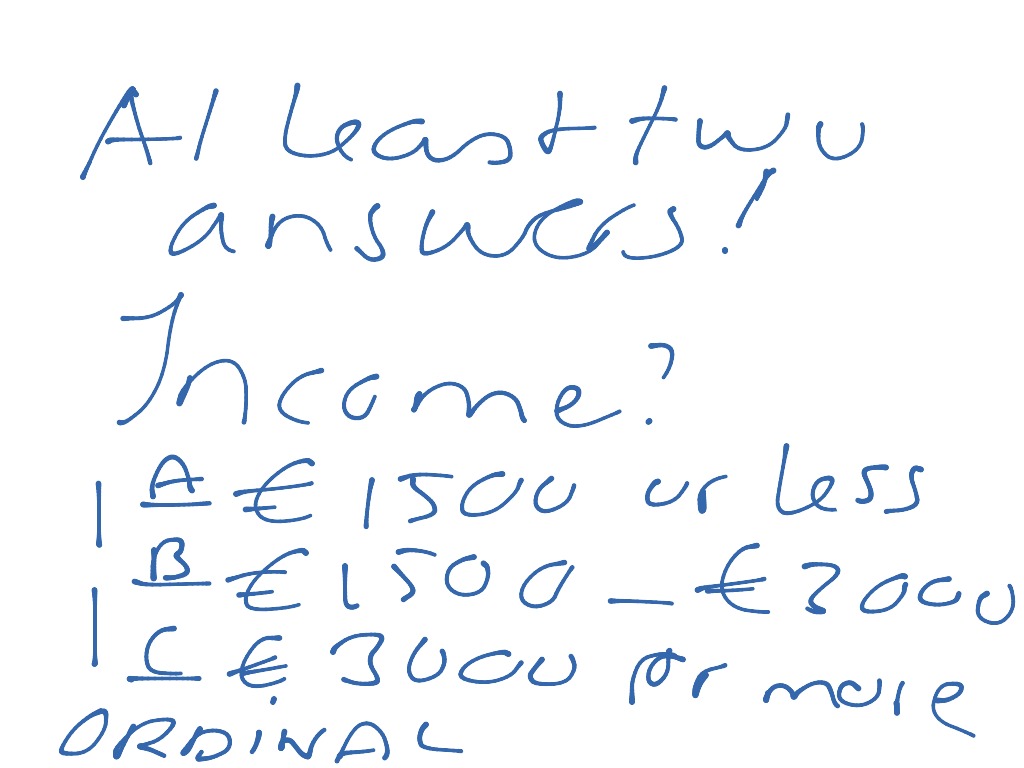 At least two
answers!
Income?
A € 1500 or less
B € 1500 - € 3000
C € 3000 or more
ORDINAL